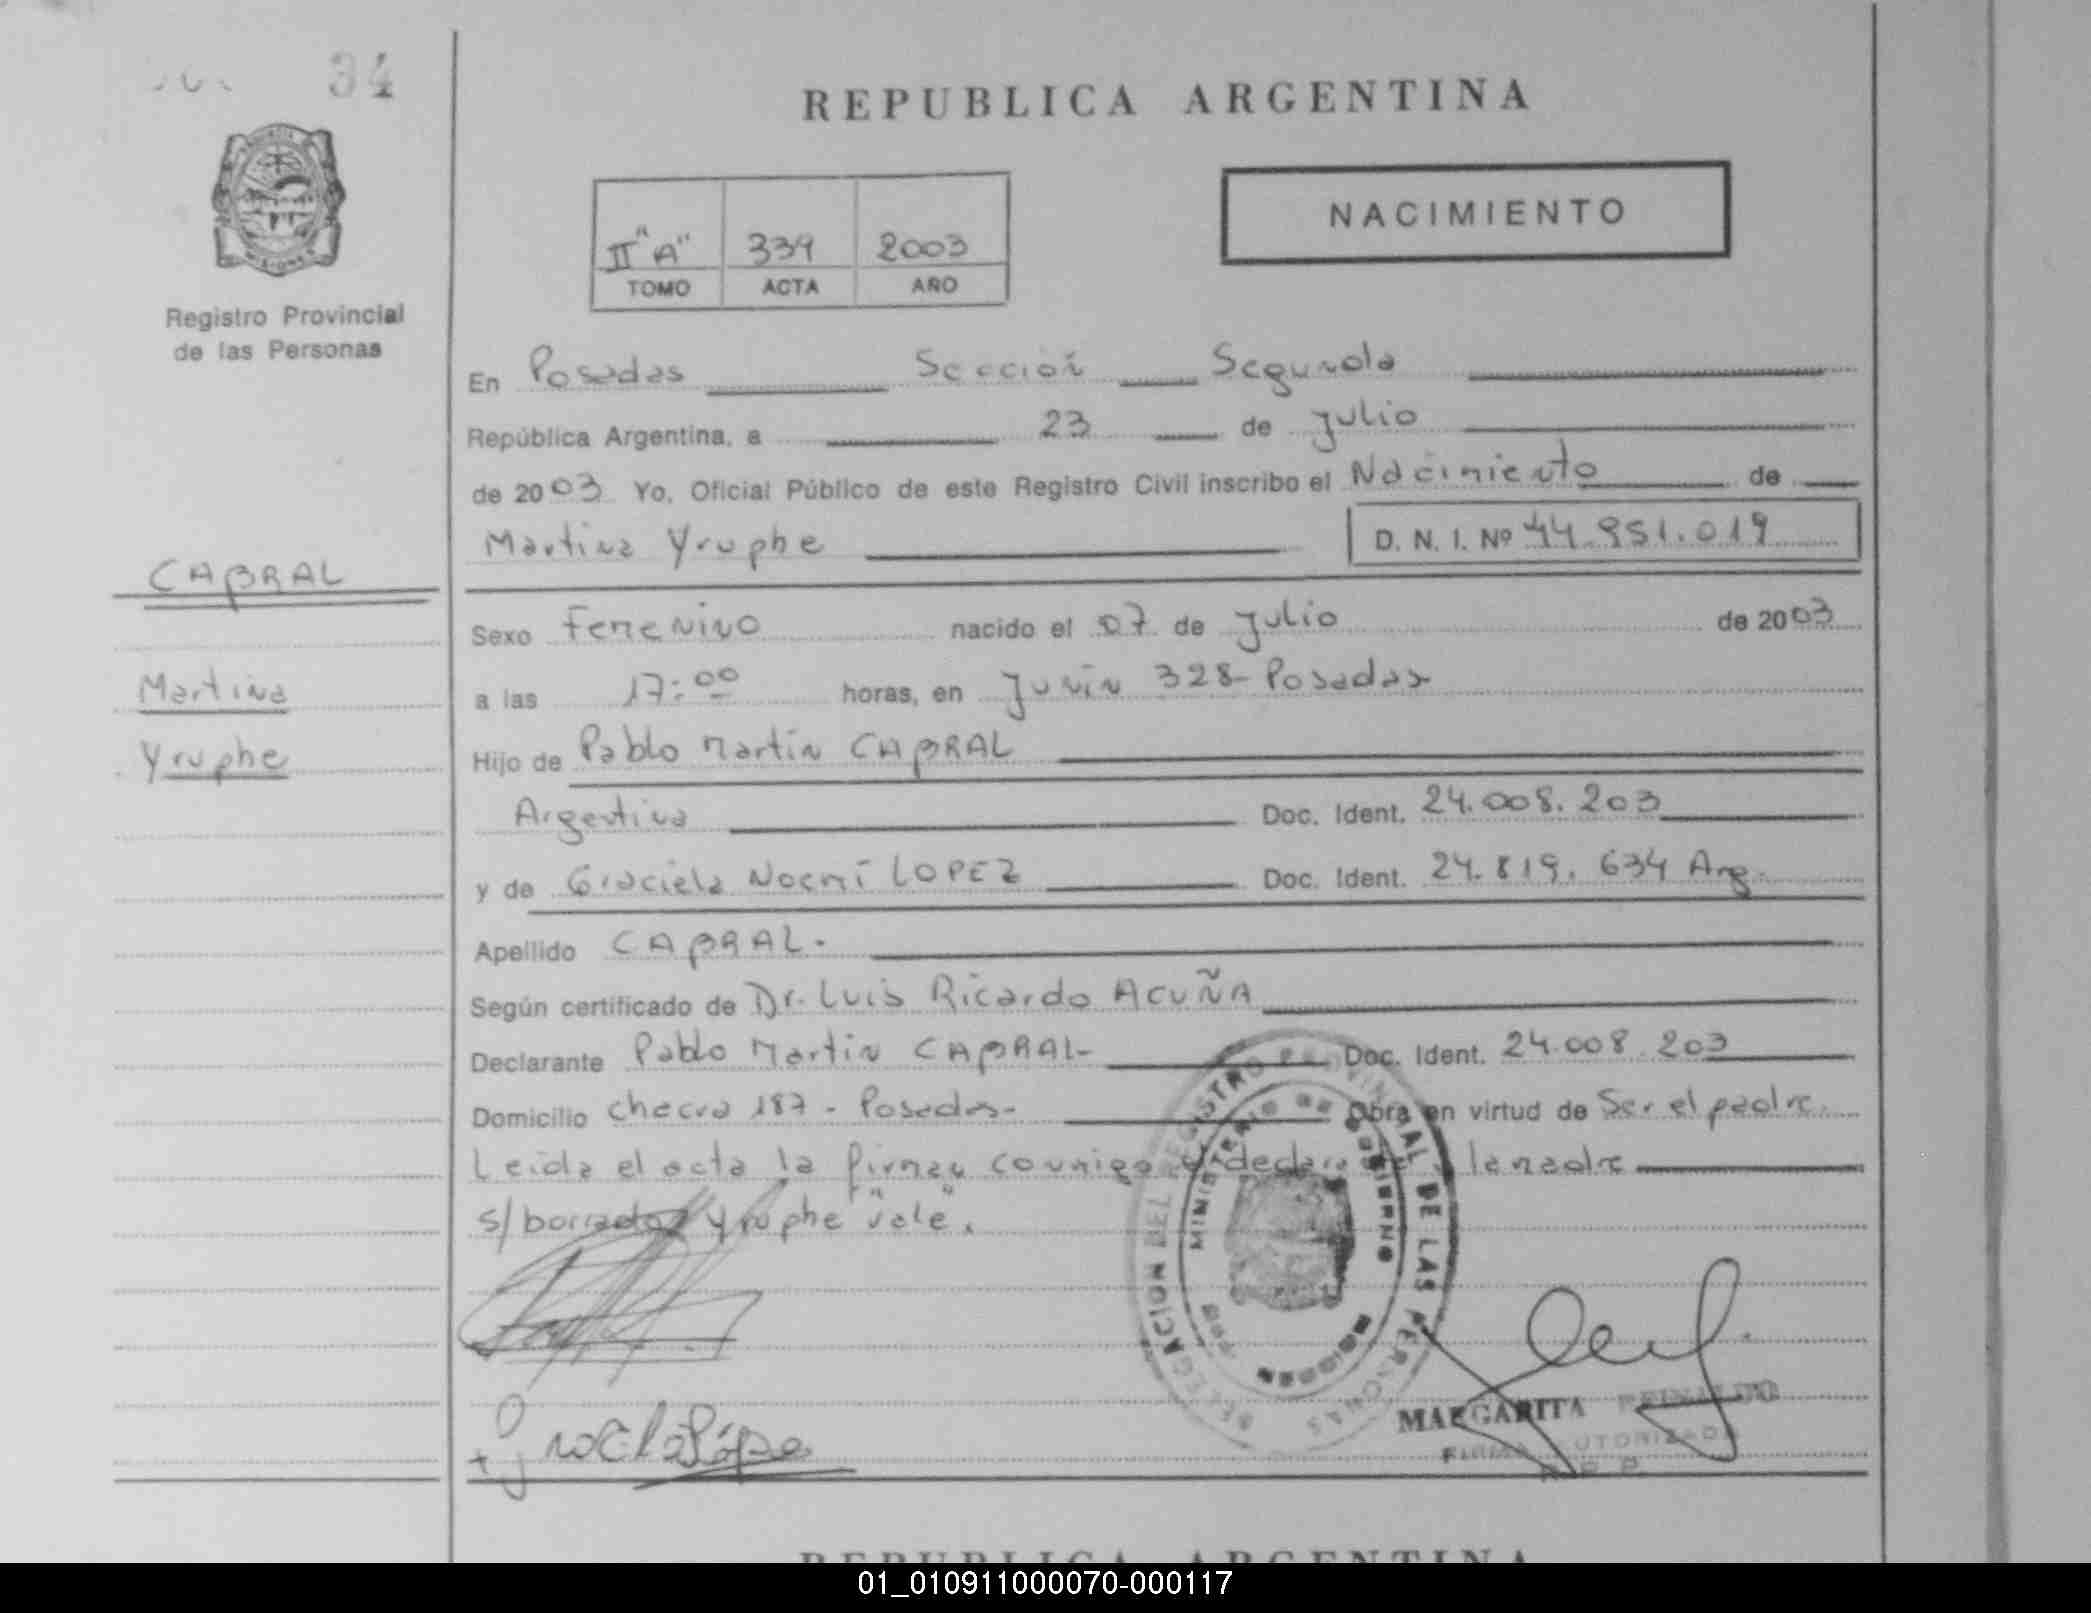 34
REPUBLICA ARGENTINA
NACIMIENTO
II "A" 339 2003
TOMO ACTA AÑO
Registro Provincial
de las Personas
En Posadas Sección Segunda
República Argentina, a 23 de Julio
de 2003 Yo, Oficial Público de este Registro Civil inscribo el Nacimiento de
Martina Yruphe D. N. I. Nº 44.951.019
CABRAL
Martina
Yruphe
Sexo Femenino nacido el 07 de Julio de 2003
a las 17:00 horas, en Junín 328- Posadas
Hijo de Pablo Martín CABRAL
Argentina Doc. Ident. 24.008.203
y de Graciela Noemí LOPEZ Doc. Ident. 24.819.634 Arg.
Apellido CABRAL.
Según certificado de Dr. Luis Ricardo ACUÑA
Declarante Pablo Martín CABRAL- Doc. Ident. 24.008.203
Domicilio Chacra 187 - Posadas- Obra en virtud de Ser el padre.
Leida el acta la firman conmigo el declarante y la madre
s/borrado Yruphe "vale".
DELEGACION DEL REGISTRO PROVINCIAL DE LAS PERSONAS
MINISTERIO DE GOBIERNO
MISIONES
MARGARITA
FIRMA AUTORIZADA
R. P. P.
REPUBLICA ARGENTINA
01_010911000070-000117